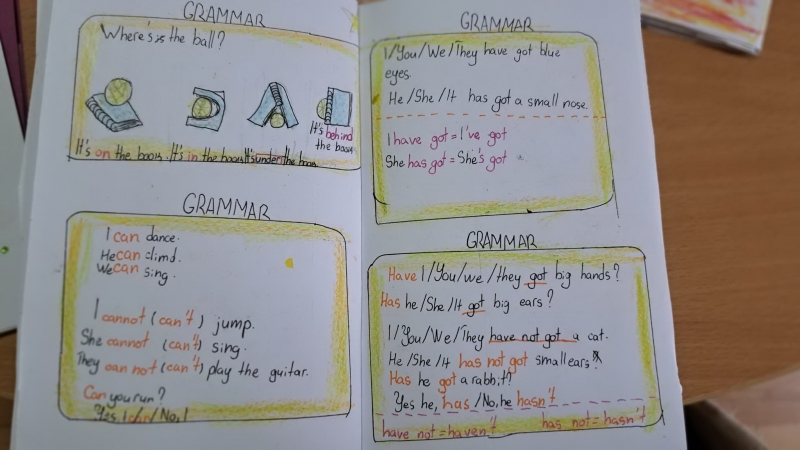 GRAMMAR
Where's is the ball?
It's behind
the book
It's on the book. It's in the book It's under the book
GRAMMAR
I can dance.
He can climd.
We can sing.
I cannot (can't) jump.
She cannot (can't) sing.
They can not (can't) play the guitar.
Can you run?
Yes, I can / No, I
GRAMMAR
I/You/We/They have got blue
eyes.
He/She/It has got a small nose.
I have got = I've got
She has got = She's got
GRAMMAR
Have I/You/we/they got big hands?
Has he/She/It got big ears?
I/You/We/They have not got a cat.
He/She/It has not got small ears
Has he got a rabbit?
Yes he, has / No, he hasn't
have not = haven't has not = hasn't